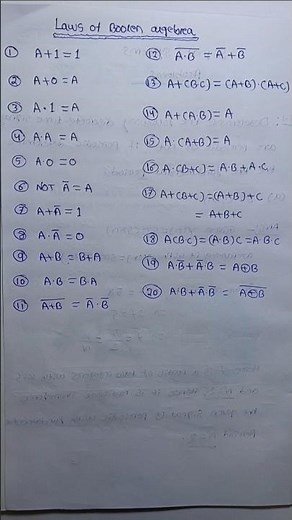 Laws of Boolen algebra
① A+1 = 1
② A+0 = A
③ A·1 = A
④ A·A = A
⑤ A·0 = 0
⑥ NOT A̅ = A
⑦ A+A̅ = 1
⑧ A·A̅ = 0
⑨ A+B = B+A
⑩ A·B = B·A
⑪ \overline{A+B} = A̅·B̅
⑫ \overline{A·B} = A̅+B̅
⑬ A+(B·C) = (A+B)·(A+C)
⑭ A+(A·B) = A
⑮ A·(A+B) = A
⑯ A·(B+C) = A·B+A·C
⑰ A+(B+C) = (A+B)+C
= A+B+C
⑱ A(B·C) = (A·B)C = A·B·C
⑲ A·B̅+A̅·B = A⊕B
⑳ A·B+A̅·B̅ = \overline{A⊕B}